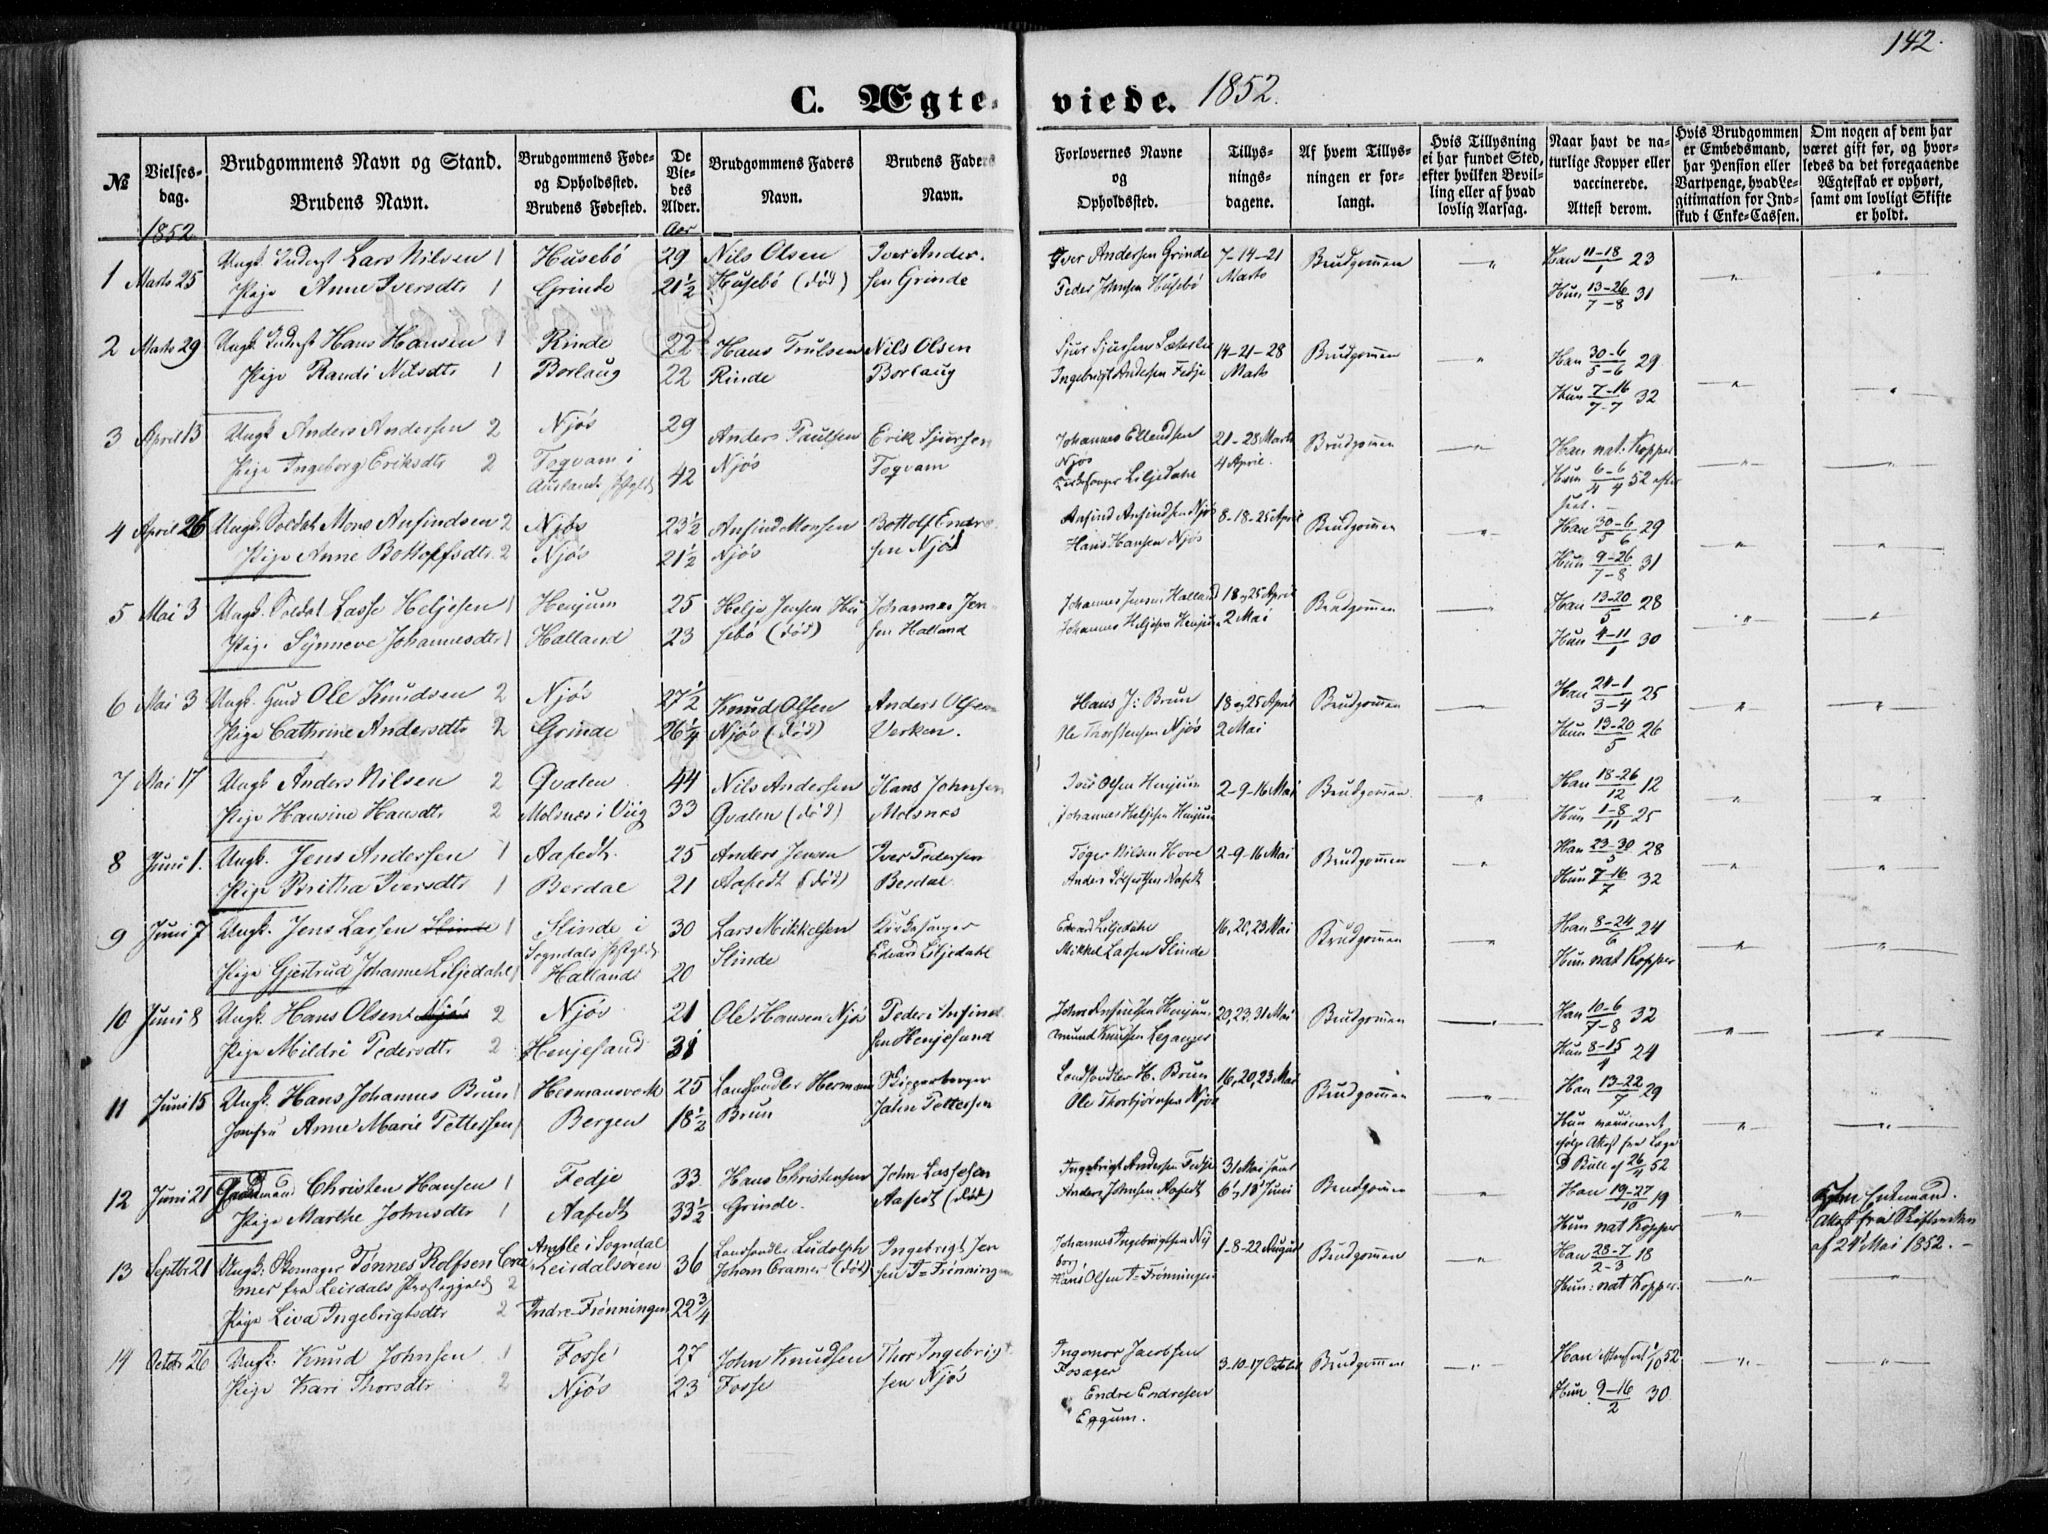 142.
C. Ægteviede. 1852.
№
Vielsesdag.
Brudgommens Navn og Stand.
Brudens Navn.
Brudgommens Føde- og Opholdssted.
Brudens Fødested.
De Viedes Alder.
Brudgommens Faders Navn.
Brudens Faders Navn.
Forlovernes Navne og Opholdssted.
Tillysningsdagene.
Af hvem Tillysningen er forlangt.
Hvis Tillysning ei har fundet Sted, efter hvilken Bevilling eller af hvad lovlig Aarsag.
Naar havt de naturlige Kopper eller vaccinerede. Attest derom.
Hvis Brudgommen er Embedsmand, har Pension eller Vartpenge, hvad Legitimation for Indskud i Enke-Cassen.
Om nogen af dem har været gift før, og hvorledes da det foregaaende Ægteskab er ophørt, samt om lovligt Skifte er holdt.
1852. Aar
1 Marts 25 Ungk. Inderst Lars Nilsen 1 Husebö 29 Nils Olsen Iver Ander- Iver Andersen Grinde 7-14-21 Brudgommen " Han 11-18/1 23 " "
Pige Anne Iversdtr 1 Grinde 21½ Husebö (död) sen Grinde Peder Johnsen Husebö Marts Hun 13-26/7-8 31
2 Marts 29 Ungk. Inderst Hans Hansen 1 Rinde 22 Hans Trulsen Nils Olsen Sjur Sjursen 14-21-28 Brudgommen " Han 30-6/5-6 29 " "
Pige Randi Nilsdtr 1 Borlaug 22 Rinde Borlaug Ingebrigt Andersen Fedje Marts Hun 7-16/7-7 32
3 April 13 Ungk Anders Andersen 2 Njös 29 Anders Paulsen Erik Sjursen Johannes Ellendsen 21-28 Marts Brudgommen " Han nat. Kopper " "
Pige Ingeborg Eriksdtr 2 Feqvam i 42 Njös Feqvam Njös 4 April. Hun 6-6/4 4 52 efter
Kirkesanger Liljedahl
4 April 26 Ungk. Soldat Mons Ansindsen 2 Njös 23½ Ansind Monsen Bottolf Endre- Ansind Ansindsen Njös 8-18-25 April Brudgommen " Han 30-6/5 6 29 " "
Pige Anne Bottolfsdtr. 2 Njös 21½ Njös sen Njös Hans Hansen Njös Hun 9-26/7-8 31
5 Mai 3 Ungk. Soldat Lasse Heljesen 1 Henjum 25 Helje Jensen Hu- Johannes Jen- Johannes Jensen Halland 18 og 25 April Brudgommen " Han 13-20/5 28 " "
Pige Synneve Johannesdtr 1 Halland 23 sebö (död) sen Halland Johannes Heljesen Henjum 2 Mai Hun 4-11/1 30
6 Mai 3 Ungk. Ole Knudsen 2 Njös 27½ Knud Olsen Anders Olsen Hans J: Brun 18 og 25 April Brudgommen " Han 24-1/3-4 25 " "
Pige Cathrine Andersdtr 2 Grinde 26¼ Njös (död) Verken. Ole Thorstensen Njös 2 Mai Hun 13-20/5 26
7 Mai 17 Ungk Anders Nilsen 2 Qvalen 44 Nils Andersen Hans Johnsen Olsen Henjum 2-9-16 Mai Brudgommen. " Han 18-26/12 12 " "
Pige Hansine Hansdtr 2 Molsnæs i Viig 33 Qvalen (död) Molsnæs Johannes Heljesen Henjum Hun 1-8/11 25
8 Juni 1. Ungk. Jens Andersen 1 Aafedt 25 Anders Jensen Iver Pedersen Töger Nilsen Hove 2-9-16 Mai Brudgommen " Han 23-30/5 28 " "
Pige Britha Iversdtr 1 Berdal 21 Aafedt (död) Berdal Anders Aafedt Hun 7-16/7 32
9 Juni 7 Ungk. Jens Larsen Slinde 1 Slinde i 30 Lars Mikkelsen Kirkesanger Edvard Liljedahl 16, 20, 23 Mai Brudgommen " Han 8-24/6 24 " "
Pige Gjertrud Johanne Liljedahl 1 Sogndals Halland 20 Slinde Edvard Liljedahl Mikkel Larsen Slinde Hun nat Kopper
10 Juni 8 Ungk. Hans Olsen Njös 2 Njös 21 Ole Hansen Njös Peder Ansind- John Ansindsen Henjum 20, 23. 31 Mai Brudgommen " Han 10-6/7-8 32 " "
Pige Mildri Pedersdtr 2 Henjesand 31 sen Henjesand Amund Knudsen Leganger Hun 8-15/4 24
11 Juni 15 Ungk. Hans Johannes Brun 1 Hermansverk 25 Landhandler Herman Skipperborger Landhandler H. Brun 16, 20, 23 Mai Brudgommen " Han 13-22/7 29 " "
Jomfru Anne Marie Pettersen 1 Bergen 18½ Brun Jahn Pettersen Ole Thorbjörnsen Njös Hun vaccineret
ifölge Attest fra Læge
Bull af 26/4 52
12 Juni 21 Christen Hansen 1 Fedje 33 Hans Christensen John Lassesen Ingebrigt Andersen Fedje 31 Mai samt Brudgommen " Han 19-27/10 19 " Enkemand.
Pige Marthe Johnsdtr 1 Aafedt 33½ Grinde. Aafedt (död) Anders Johnsen Aafedt 6 og 13 Juni Hun nat Kopper Attest fra Skifteretten
af 24 Mai 1852. -
13 Septbr 21 Ungk: Skomager Tönnes Rolfsen Cra- Amble i Sogndal 36 Landhandler Ludolph Ingebrigt Jen- Johannes Ingebrigtsen Ny- 1-8-22 August Brudgommen " Han 28-7/2-3 18 " "
mer fra Leirdals Præstegjeld 2 Leirdalsören Johan Cramer (död) sen I=Frönningen borg
Pige Liva Ingebrigtsdtr 2 Indre-Frönningen 22¾ Hans Olsen I=Frönningen Hun: nat Kopper.
14 Octbr 26 Ungk: Knud Johnsen 1 Fosse 27 John Knudsen Thor Ingebrigt- Ingemor Jacobsen 3-10-17 October Brudgommen " Han 1/10 52 " "
Pige Kari Thorsdtr 2 Njös 23 Fosse sen Njös Fosager Hun 9-16/2 30
Endre Endresen
Eggum.